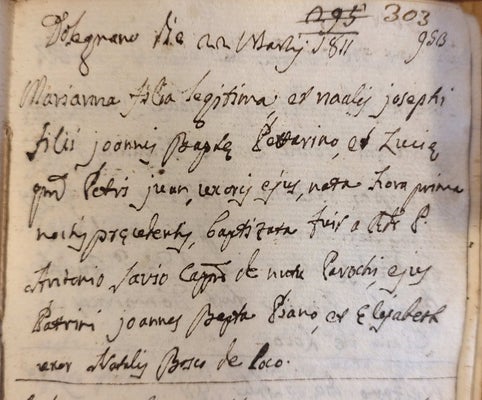 295 303
Dolegnano die 22 Martij 1811 953
Marianna filia legitima et nãalis Josephi
filii Joannis Baptę Pettarino, et Lucię
qm̃ Petri Juan, uxoris ejus, nata hora prima
noctis pręcedentis, baptizata fuit a R. P.
Antonio Savio Capp.º de nutu Parochi, ejus
Patrini Joannes Bapta Piano, et Elisabeth
uxor Natalis Bosco de Loco.